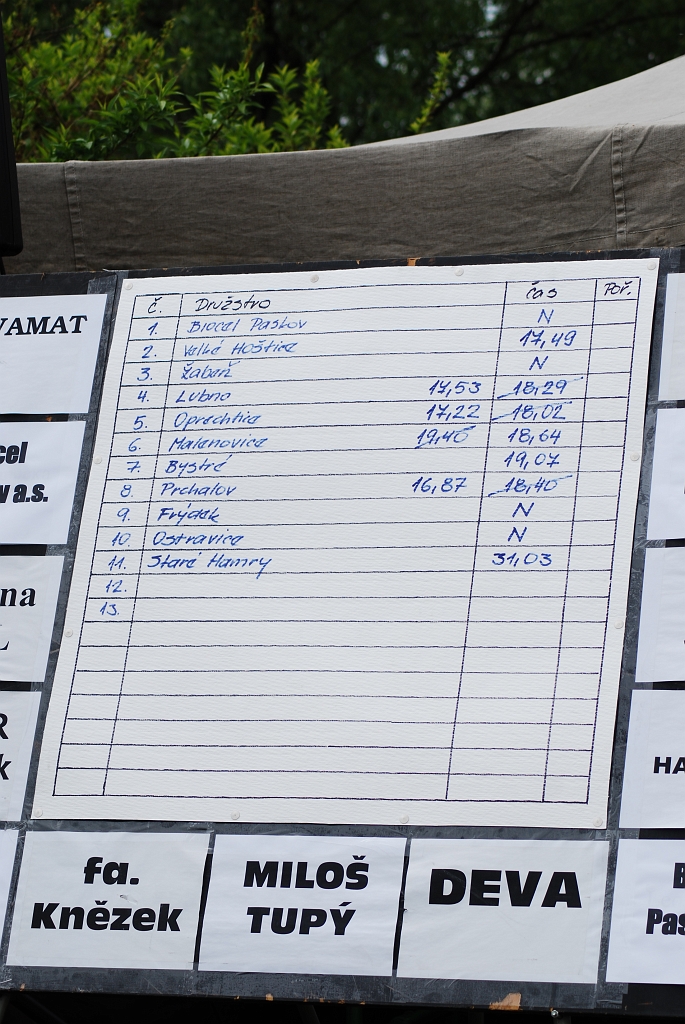 č. Družstvo čas Poř.
1. Biocel Paskov N
2. Velké Hoštice 17,49
3. Žabeň N
4. Lubno 17,53 18,29
5. Oprechtice 17,22 18,02
6. Malenovice 19,40 18,64
7. Bystré 19,07
8. Prchalov 16,87 18,40
9. Frýdek N
10. Ostravice N
11. Staré Hamry 31,03
12.
13.
VAMAT
cel
v a.s.
na
L
R
k
HA
fa.
Knězek
MILOŠ
TUPÝ
DEVA
B
Pas